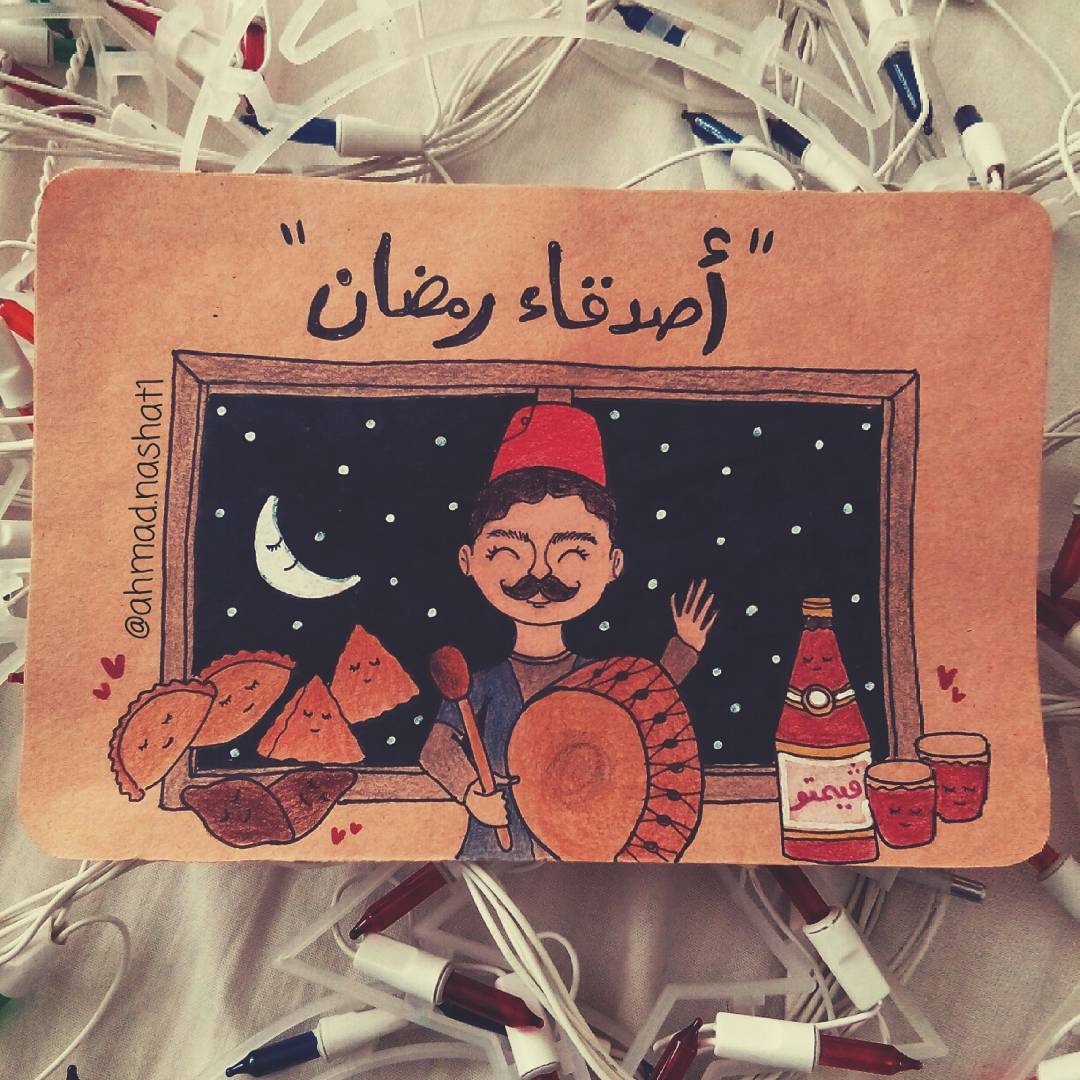 "أصدقاء رمضان"
@ahmad.nashat1
ڤيمتو